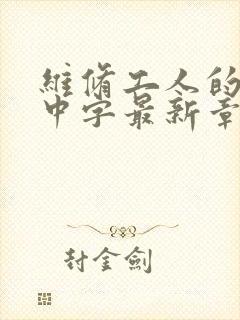 維修工人的
中字最新章
封金劍